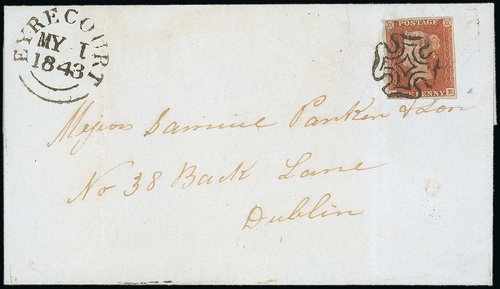 EYRECOURT
MY 1
1843
POSTAGE
PENNY
E
Messrs Samuel Parker & Son
No 38 Back Lane
Dublin